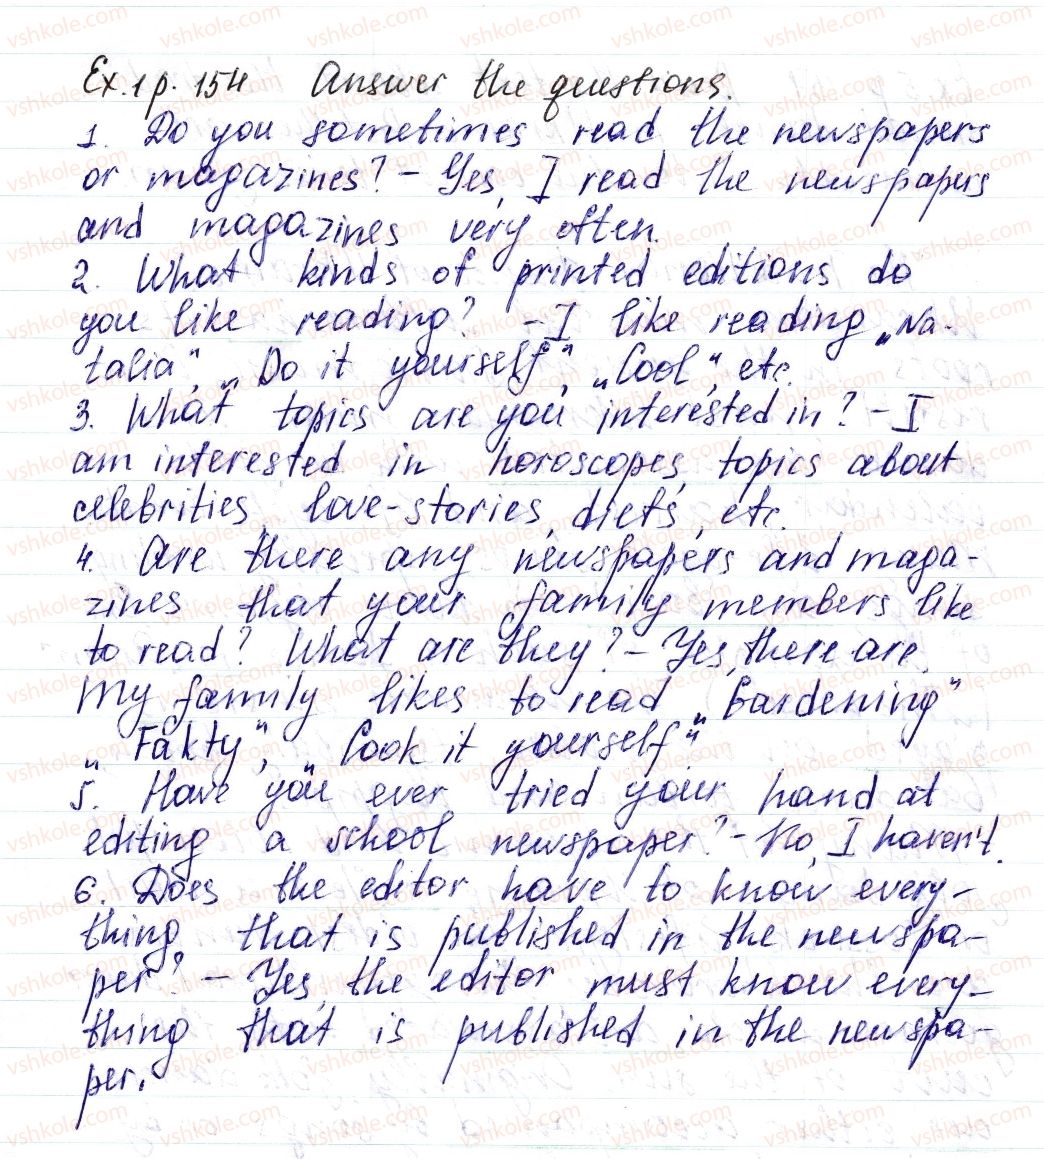 Ex.1 p. 154 Answer the questions.
1. Do you sometimes read the newspapers
or magazines? - Yes, I read the newspapers
and magazines very often.
2. What kinds of printed editions do
you like reading? - I like reading „Na-
talia", „Do it yourself", „Cool", etc.
3. What topics are you interested in? - I
am interested in horoscopes, topics about
celebrities, love-stories, diets, etc.
4. Are there any newspapers and maga-
zines that your family members like
to read? What are they? - Yes, there are.
My family likes to read „Gardening"
„Fakty", „Cook it yourself".
5. Have you ever tried your hand at
editing a school newspaper? - No, I haven't.
6. Does the editor have to know every-
thing that is published in the newspa-
per? - Yes, the editor must know every-
thing that is published in the newspa-
per.